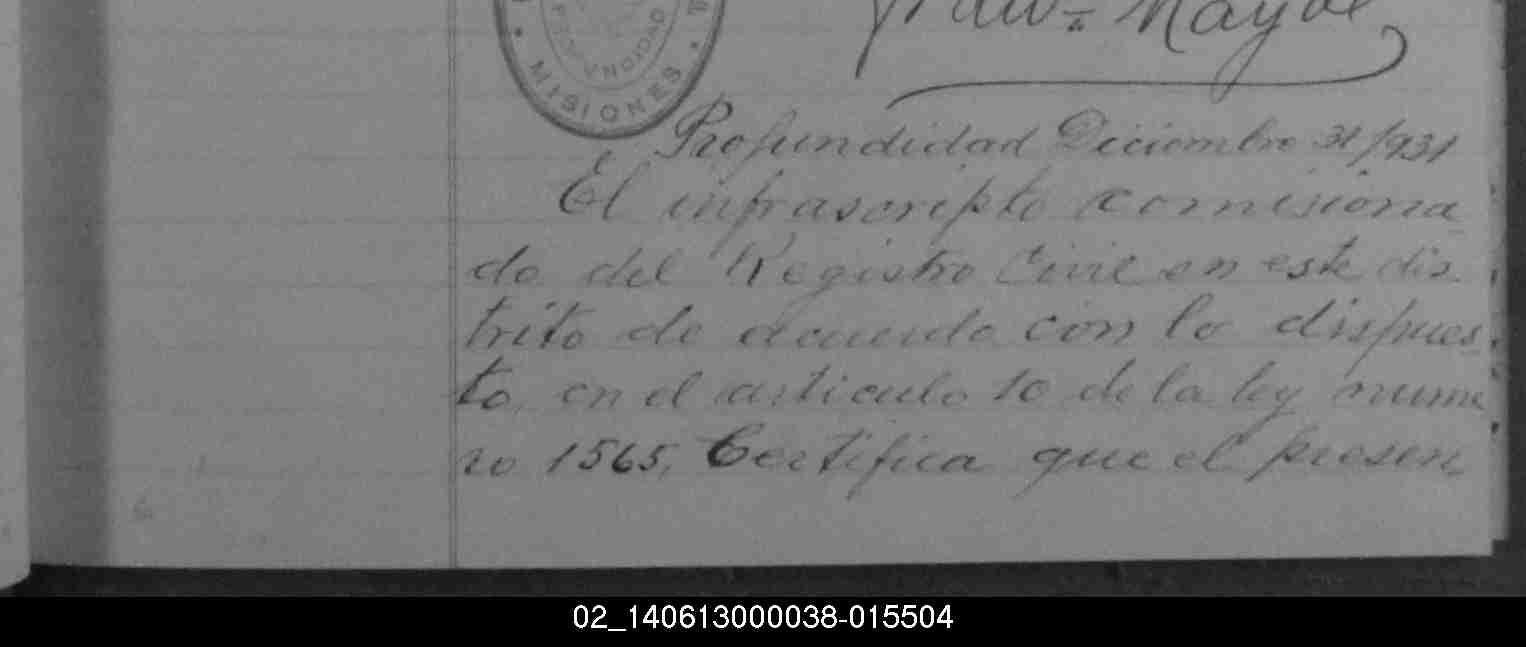 PROFUNDIDAD
MISIONES
Profundidad Diciembre 31/931
El infrascripto comisiona
do del Registro Civil en este dis
trito de acuerdo con lo dispues
to en el articulo 10 de la ley nume
ro 1565, Certifica que el presen
02_140613000038-015504